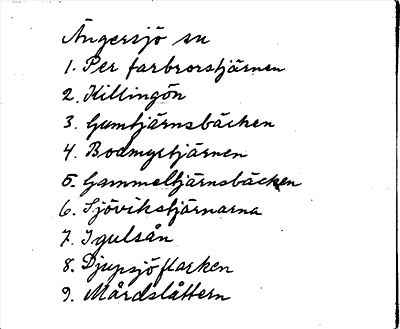 Ängersjö sn
1. Per farbrorstjärnen
2. Killingön
3. Gumtjärnsbäcken
4. Bodmyrtjärnen
5. Gammeltjärnsbäcken
6. Sjövikstjärnarna
7. Igulsån
8. Djupsjöflarken
9. Mårdslåttern